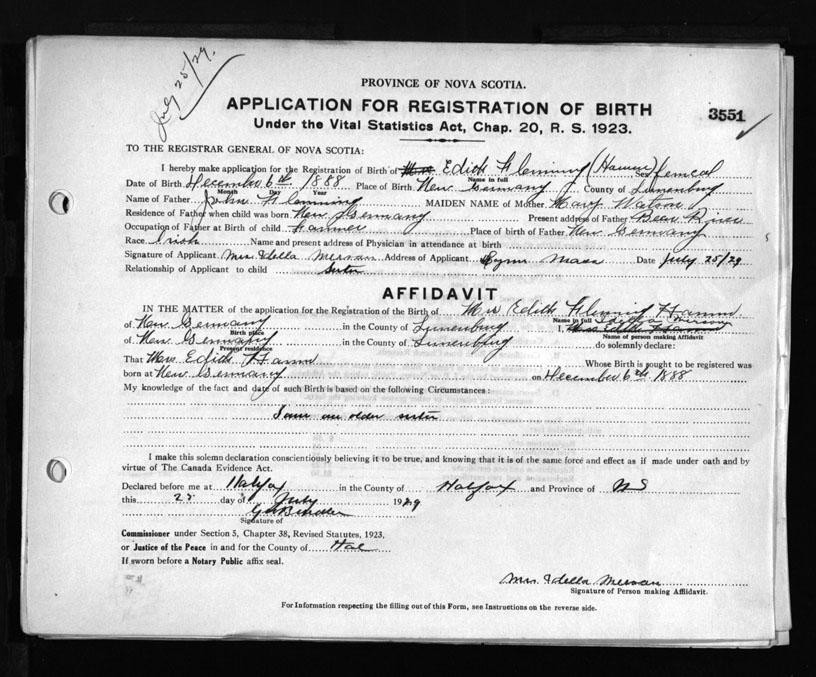 July 25/29.
PROVINCE OF NOVA SCOTIA.
APPLICATION FOR REGISTRATION OF BIRTH
3551
Under the Vital Statistics Act, Chap. 20, R. S. 1923.
TO THE REGISTRAR GENERAL OF NOVA SCOTIA:
I hereby make application for the Registration of Birth of Edith Fleming (Hamm) Sex femeal
Name in full
Date of Birth December 6th 1888 Place of Birth New Germany County of Lunenburg
Month Day Year
Name of Father John Flemming MAIDEN NAME of Mother Mary Watson
Residence of Father when child was born New Germany Present address of Father Bear River
Occupation of Father at Birth of child Farmer Place of birth of Father New Germany
Race Irish Name and present address of Physician in attendance at birth
Signature of Applicant Mrs Idella Address of Applicant Lynn Mass Date July 25/29
Relationship of Applicant to child sister
AFFIDAVIT
IN THE MATTER of the application for the Registration of the Birth of Mrs Edith Fleming Hamm
Name in full
of New Germany in the County of Lunenburg I, Mrs Edith Hamm
Birth place Name of person making Affidavit
of New Germany in the County of Lunenburg do solemnly declare:
Present residence
That Mrs Edith Hamm Whose Birth is sought to be registered was
born at New Germany on December 6th 1888
My knowledge of the fact and date of such Birth is based on the following Circumstances:
I am an older sister
I make this solemn declaration conscientiously believing it to be true, and knowing that it is of the same force and effect as if made under oath and by
virtue of The Canada Evidence Act.
Declared before me at Halifax in the County of Halifax and Province of NS
this day of July 1929
Signature of
Commissioner under Section 5, Chapter 38, Revised Statutes, 1923,
or Justice of the Peace in and for the County of Hal
If sworn before a Notary Public affix seal.
Mrs. Idella
Signature of Person making Affidavit.
For Information respecting the filling out of this Form, see Instructions on the reverse side.